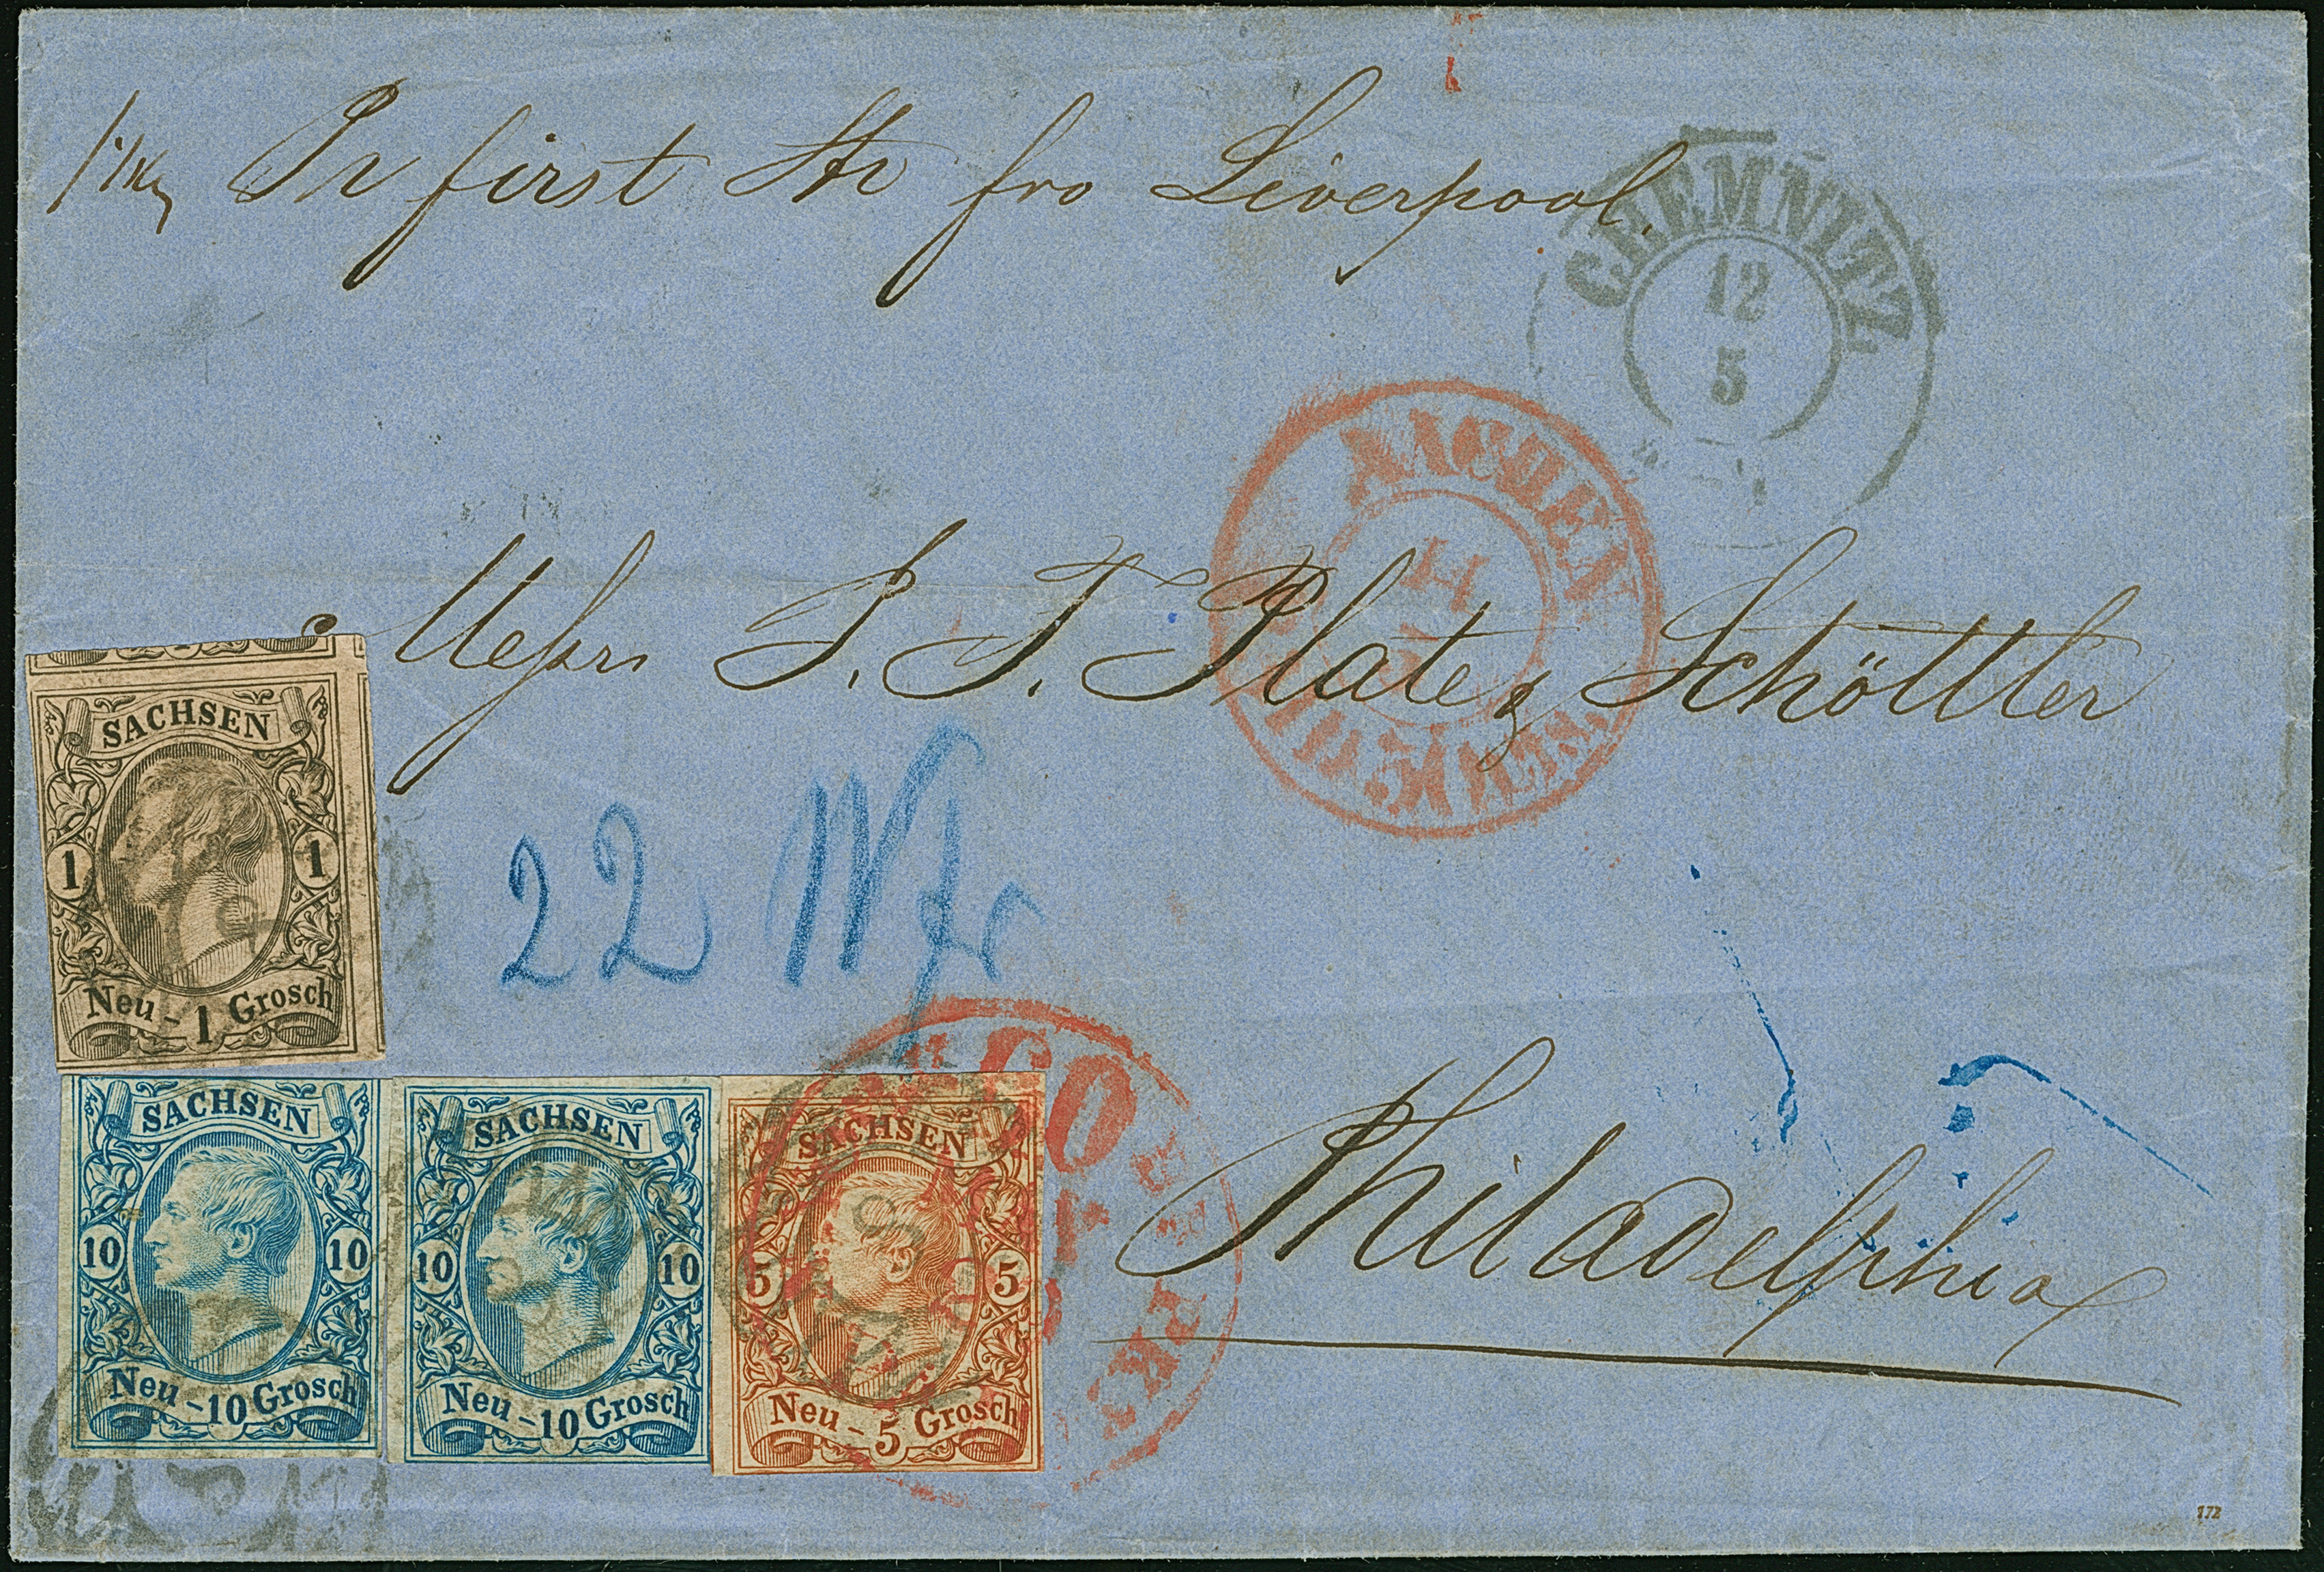 Pr first Str fro Liverpool.
CHEMNITZ
12
5
AACHEN
Messrs J. T. Plate & Schöttler
SACHSEN
1 1
Neu-1 Grosch
22 Wfr
Philadelphia
SACHSEN
10 10
Neu-10 Grosch
SACHSEN
10 10
Neu-10 Grosch
SACHSEN
5 5
Neu-5 Grosch
PKT
172